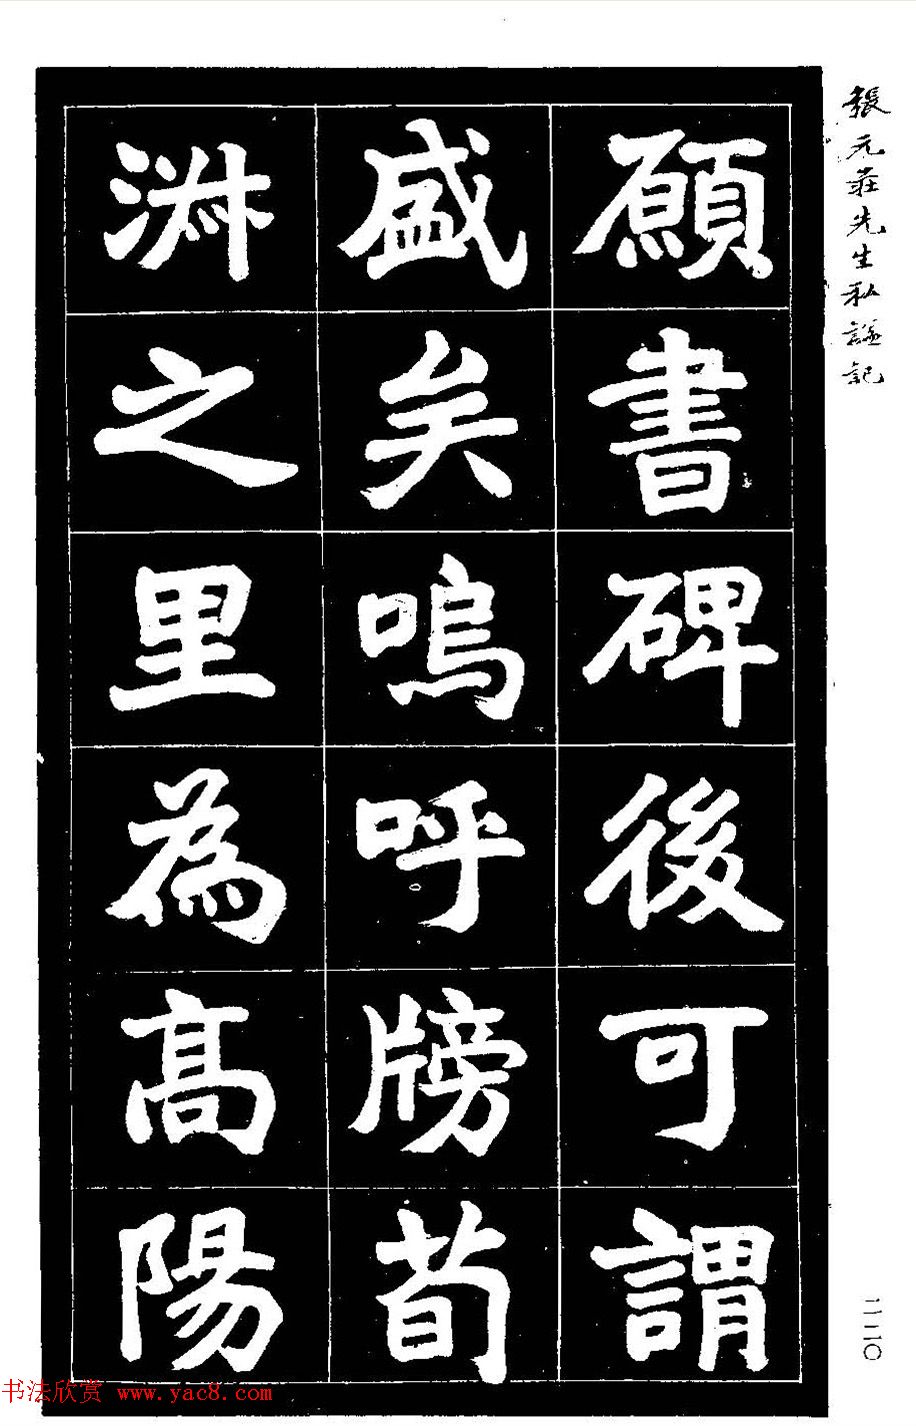 張元莊先生私謚記
願書碑後可謂
盛矣嗚呼牓荀
淵之里為髙陽
二二〇
书法欣赏 www.yac8.com